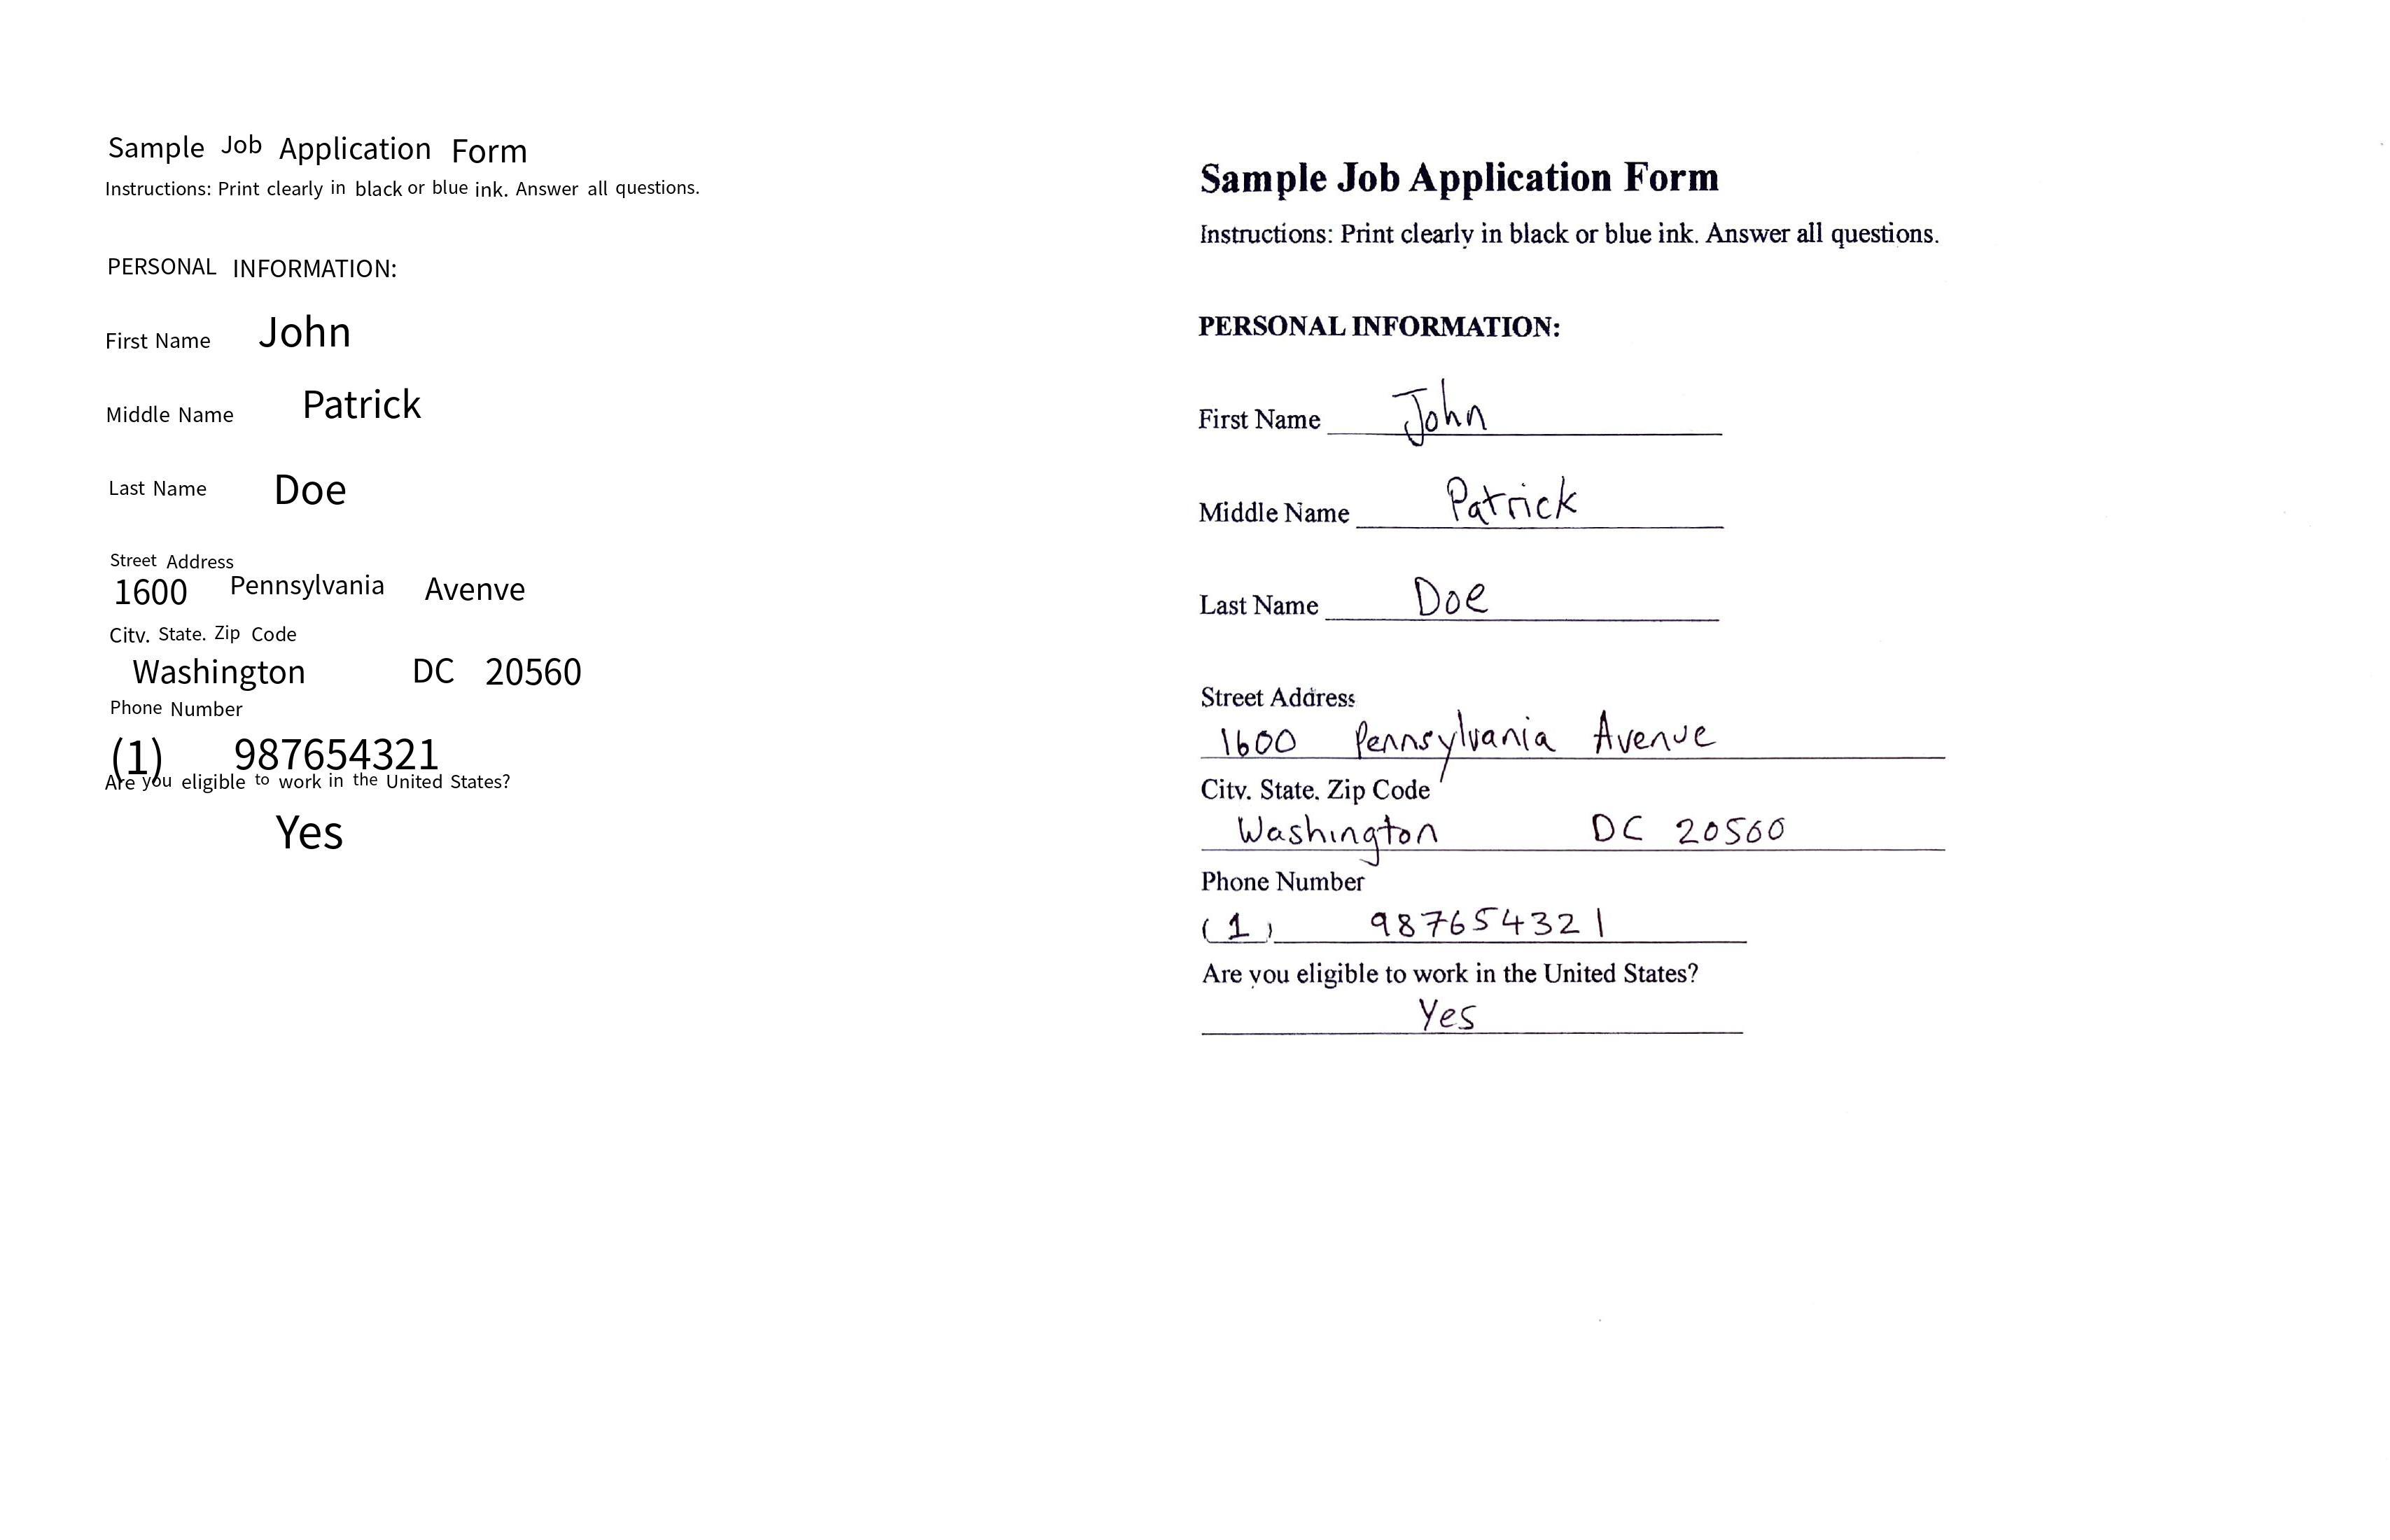 Sample Job Application Form
Instructions: Print clearly in black or blue ink. Answer all questions.
PERSONAL INFORMATION:
First Name John
Middle Name Patrick
Last Name Doe
Street Address
1600 Pennsylvania Avenve
Citv. State. Zip Code
Washington DC 20560
Phone Number
(1) 987654321
Are you eligible to work in the United States?
Yes
Sample Job Application Form
Instructions: Print clearly in black or blue ink. Answer all questions.
PERSONAL INFORMATION:
First Name John
Middle Name Patrick
Last Name Doe
Street Address
1600 Pennsylvania Avenue
Citv. State. Zip Code
Washington DC 20560
Phone Number
(1) 987654321
Are you eligible to work in the United States?
Yes